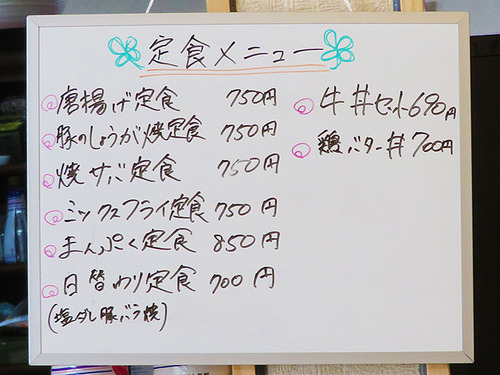 定食メニュー
唐揚げ定食 750円
豚のしょうが焼定食 750円
焼サバ定食 750円
ミックスフライ定食 750円
まんぷく定食 850円
日替わり定食 700円
(塩ダレ豚バラ焼)
牛丼セット690円
鶏バター丼700円